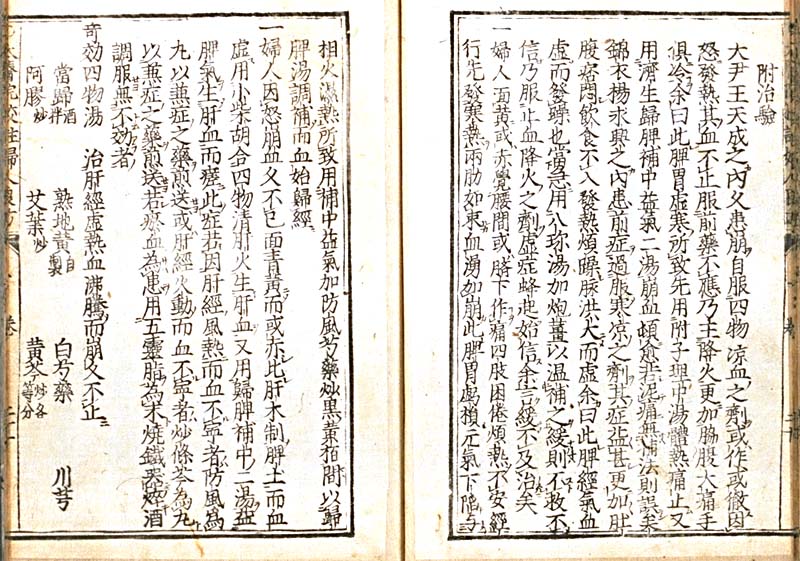 附治驗
大尹王天成之內久患崩自服四物凉血之劑或作或徹因
怒發熱其血不止服前藥不應乃主降火更加胸腹大痛手
俱冷余曰此脾胃虛寒所致先用附子理中湯體熱痛止又
用濟生歸脾補中益氣二湯崩血頓愈若泥痛無補法則誤矣
錦衣楊永興之內患前症過服寒凉之劑其症益甚更加肚
腹痞悶飲食不入發熱煩躁脉洪大而虛余曰此脾經氣血
虛而發躁也當急用八珍湯加炮薑以温補之緩則不救不
信乃服止血降火之劑虛症蜂起始信余言緩不及治矣
一婦人面黃或赤覺腰間或臍下作痛四肢困倦煩熱不安經
行先發寒熱兩肋如束血湧如崩此脾胃虧損元氣下陷與
相火濕熱所致用補中益氣加防風芍藥炒黑黃栢間以歸
脾湯調補而血始歸經
一婦人因怒崩血久不已面青黃而或赤此肝木制脾土而血
虛用小柴胡合四物清肝火生肝血又用歸脾補中二湯益
脾氣生肝血而瘥此症若因肝經風熱而血不寧者防風為
丸以兼症之藥煎送或肝經火動而血不寧者炒條芩為丸
以兼症之藥煎送若瘀血為患用五靈脂為末燒鐵器焠酒
調服無不効者
奇効四物湯 治肝經虛熱血沸騰而崩久不止
當歸酒拌 熟地黃自製 白芍藥 川芎
阿膠炒 艾葉炒 黃芩炒各等分